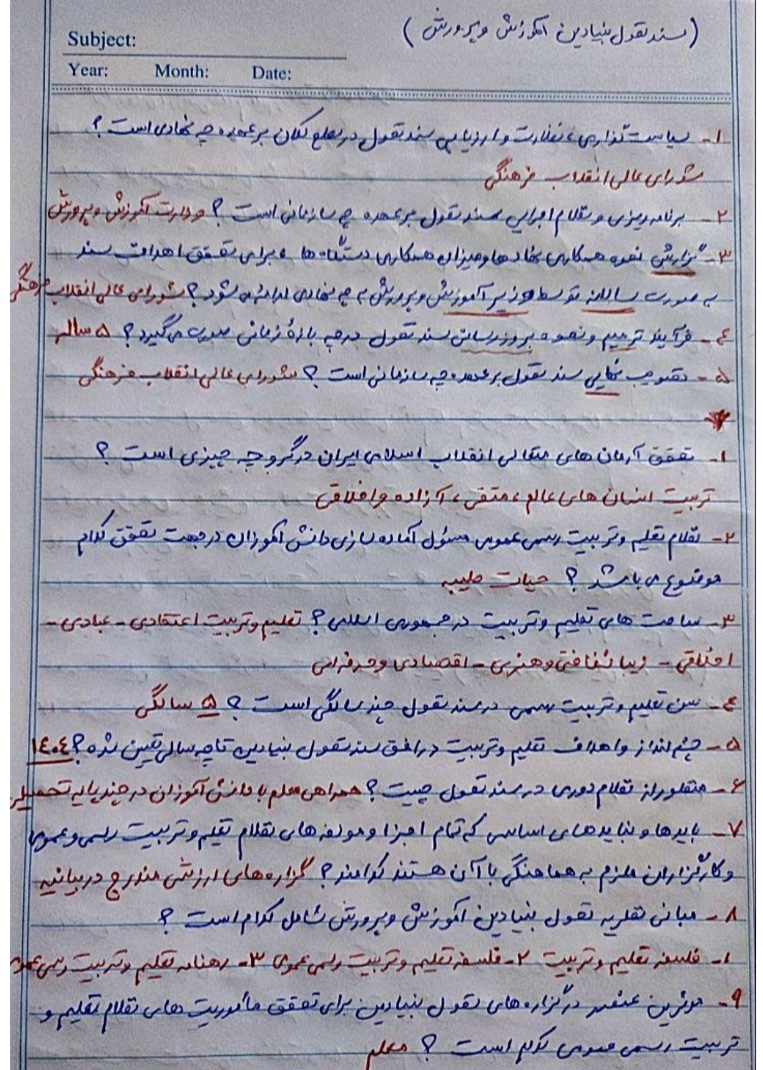 (سند تحول بنیادین آموزش و پرورش)
Subject:
Year: Month: Date:
۱- سیاست گذاری، نظارت و ارزیابی سند تحول در سطح کلان بر عهده چه نهادی است؟
شورای عالی انقلاب فرهنگی
۲- برنامه ریزی و نظام اجرایی سند تحول بر عهده چه سازمانی است؟ وزارت آموزش و پرورش
۳- گزارش نحوه همکاری نهادها و میزان همکاری دستگاه ها، برای تحقق اهداف سند
به صورت سالانه توسط وزیر آموزش و پرورش به چه نهادی ارائه می شود؟ شورای عالی انقلاب فرهنگی
۴- فرآیند ترمیم و نحوه بروزرسانی سند تحول در چه بازه زمانی صورت می گیرد؟ ۵ ساله
۵- تصویب نهایی سند تحول بر عهده چه سازمانی است؟ شورای عالی انقلاب فرهنگی
۱- تحقق آرمان های متعالی انقلاب اسلامی ایران در گرو چه چیزی است؟
تربیت انسان های عالم، متقی، آزاده و اخلاقی
۲- نظام تعلیم و تربیت رسمی عمومی مسئول آماده سازی دانش آموزان در جهت تحقق کدام
موضوع می باشد؟ حیات طیبه
۳- ساحت های تعلیم و تربیت در جمهوری اسلامی؟ تعلیم و تربیت اعتقادی - عبادی -
اخلاقی - زیبا شناختی و هنری - اقتصادی و حرفه ای
۴- سن تعلیم و تربیت رسمی در سند تحول چند سالگی است؟ ۵ سالگی
۵- چشم انداز و اهداف تعلیم و تربیت در افق سند تحول بنیادین تا چه سالی تعیین شده؟ ۱۴۰۴
۶- منظور از نظام دوری در سند تحول چیست؟ همراهی معلم با دانش آموزان در چند پایه تحصیلی
۷- بایدها و نبایدهای اساسی که تمام اجزا و مولفه های نظام تعلیم و تربیت رسمی و عمومی
و کارگزاران ملزم به هماهنگی با آن هستند کدامند؟ گزاره های ارزشی مندرج در بیانیه
۸- مبانی نظریه تحول بنیادین آموزش و پرورش شامل کدام است؟
۱- فلسفه تعلیم و تربیت ۲- فلسفه تعلیم و تربیت رسمی عمومی ۳- رهنامه تعلیم و تربیت رسمی
۹- موثرین عنصر در گزاره های تحول بنیادین برای تحقق ماموریت های نظام تعلیم و
تربیت رسمی عمومی کدام است؟ معلم